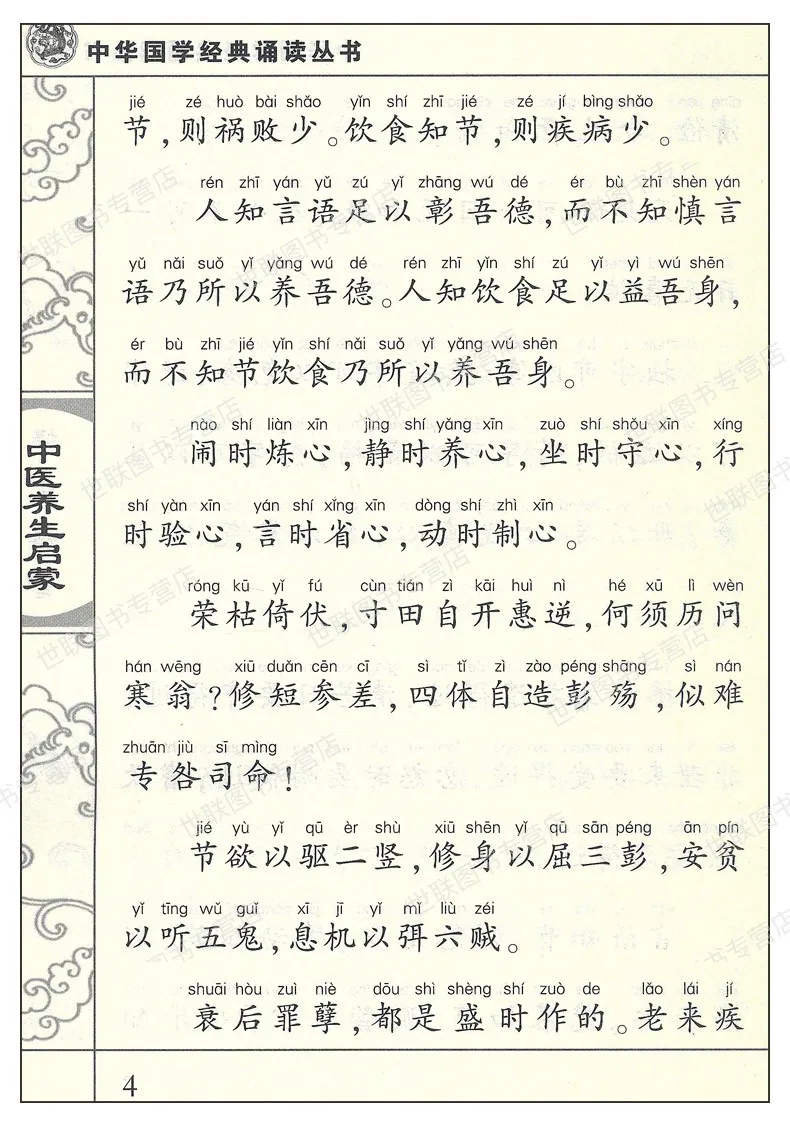 中华国学经典诵读丛书
jié zé huò bài shǎo yǐn shí zhī jié zé jí bìng shǎo
节，则祸败少。饮食知节，则疾病少。
rén zhī yán yǔ zú yǐ zhāng wú dé ér bù zhī shèn yán
人知言语足以彰吾德，而不知慎言
yǔ nǎi suǒ yǐ yǎng wú dé rén zhī yǐn shí zú yǐ yì wú shēn
语乃所以养吾德。人知饮食足以益吾身，
ér bù zhī jié yǐn shí nǎi suǒ yǐ yǎng wú shēn
而不知节饮食乃所以养吾身。
nào shí liàn xīn jìng shí yǎng xīn zuò shí shǒu xīn xíng
闹时炼心，静时养心，坐时守心，行
shí yàn xīn yán shí xǐng xīn dòng shí zhì xīn
时验心，言时省心，动时制心。
róng kū yǐ fú cùn tián zì kāi huì nì hé xū lì wèn
荣枯倚伏，寸田自开惠逆，何须历问
hán wēng xiū duǎn cēn cī sì tǐ zì zào péng shāng sì nán
寒翁？修短参差，四体自造彭殇，似难
zhuān jiù sī mìng
专咎司命！
jié yù yǐ qū èr shù xiū shēn yǐ qū sān péng ān pín
节欲以驱二竖，修身以屈三彭，安贫
yǐ tīng wǔ guǐ xī jī yǐ mǐ liù zéi
以听五鬼，息机以弭六贼。
shuāi hòu zuì niè dōu shì shèng shí zuò de lǎo lái jí
衰后罪孽，都是盛时作的。老来疾
中医养生启蒙
4
世联图书专营店